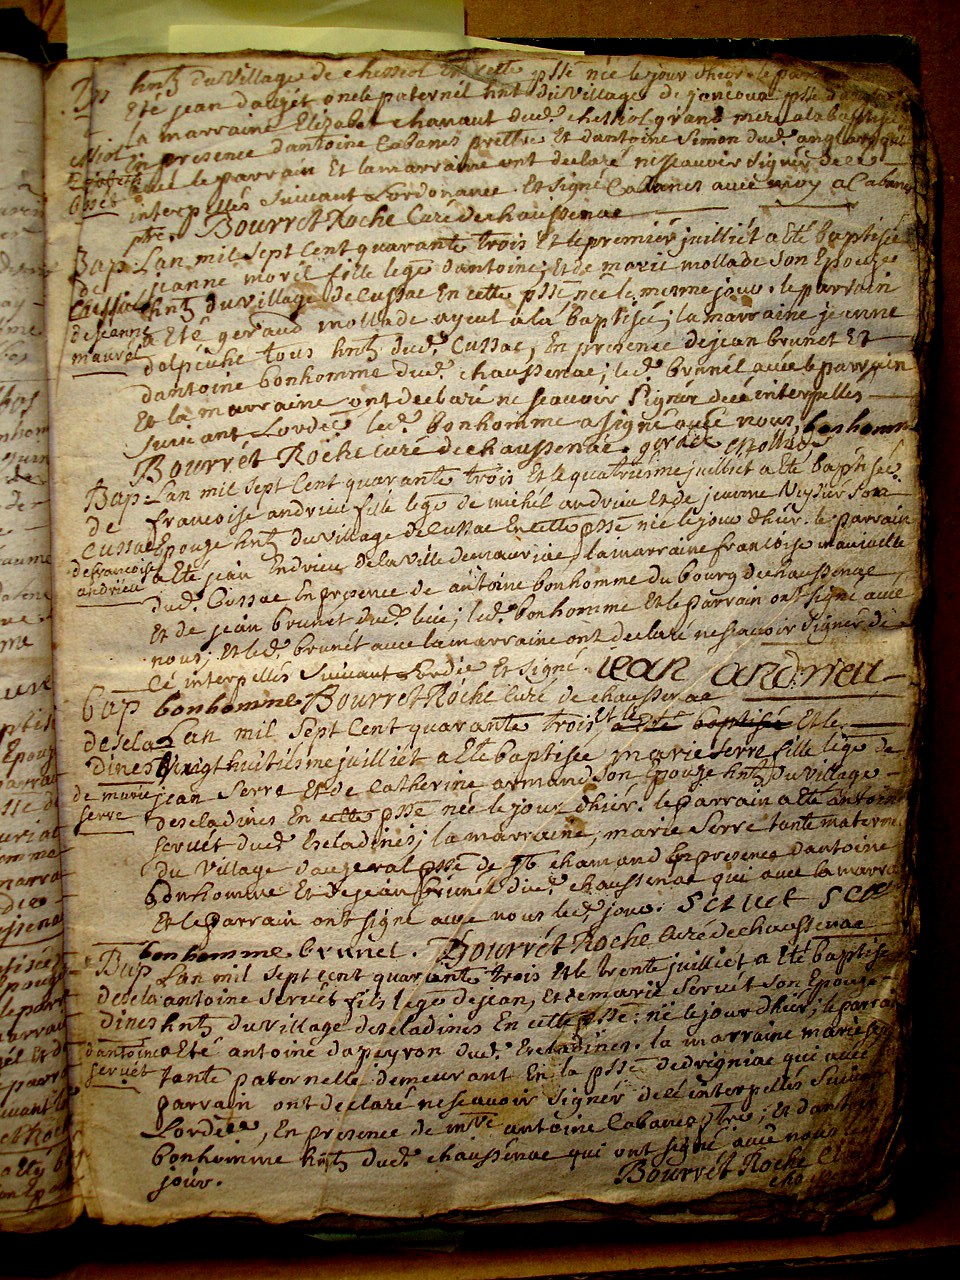 hnts du village de chessiol en cette psse née le jour d'heir. le par
Eté jean daugét oncle paternel hnt du village de joncoux psse
la marraine Elizabet chanaut dud. chessiol grand mere a la baptisée
En presence d'antoine Cabanes prettre Et d'antoine Simon dud.
le parrain Et la marraine ont declaré ne sçavoir signer de ce
interpellés suivant Lordonance. Et signé Cabanes avec moy a Cabanes
ptre. Bourret Roche Curé de chaussenac
Bap Lan mil sept Cent quarante trois Et le premier juilliét a Eté baptisée
de jeanne moré fille legme d'antoine; Et de marie mollade son Epouze
Cussac hnts du village de Cussac En cette psse née le mesme jour. le parrain
de jeanne a Eté geraud mollade ayeut a la baptisée; la marraine jeanne
maurel dolpeuche tous hnts dud. Cussac, En presence de jean brunet Et
d'antoine bonhomme dud. chaussenac; led. brunél avec le parrain
Et la marraine ont declaré ne sçavoir signér de ce interpelles
suivant Lordce led. bonhomme a signé avec nous, bonhomme
Bourrét Roche curé de chaussenac
Bap Lan mil sept Cent quarante trois Et le quatriesme juilliet a Eté baptisée
de francoise andrieu fille legme de michél andrieu Et de jeanne Son
Cussac Epouze hnts du village de Cussac En cette psse née le jour d'hiér. le parrain
de francoise a Eté jean Endrieu de la ville de mauriac, la marraine francoise
andrieu dud. Cussac En presence de antoine bonhomme du bourg de chaussenac
Et de jean brunét dud. lieu; led. bonhomme Et le parrain ont signé avec
nous; Et led. brunét avec la marraine ont declaré ne sçavoir signer de
ce interpellés suivant Lordce Et signé. iean andrieu
bap bonhomme Bourret Roche curé de chaussenac
de scla Lan mil sept Cent quarante trois Et le a Eté baptisée Et le
dines vingt huitiesme juilliét a Eté baptisée marie serre fille legme de
de marie jean serre Et de Catherine armand son Epouze hnts du village
serre descladines En cette psse née le jour d'hiér. le parrain a Eté antoine
servét dud. Escladines; la marraine, marie serre tante materne
du village d'auzeral psse de st chamand En presence d'antoine
bonhomme Et de jean brunet dud. chaussenac qui avec la marra
Et le parrain ont signé avec nous led. jour. servet
bonhomme brunel. Bourrét Roche curé de chaussenac
Bap Lan mil sept cent quarante trois Et le trente juilliét a Eté baptisé
de scla antoine servét fils legme de jean, Et de marie servét son Epouze
dines hnts du village de scladines En cette psse: né le jour d'hiér; le parrain
d'antoine a Eté antoine dapeyron dud. Escladines. la marraine marie
servét tante paternelle demeurant En la psse de drigniac qui avec
parrain ont declaré ne sçavoir signér de ce interpellés suivant
Lordce, En presence de mre antoine Cabanes ptre; Et d'antoine
bonhomme hnt dud. chaussenac qui ont signé avec nous
jour. Bourrét Roche